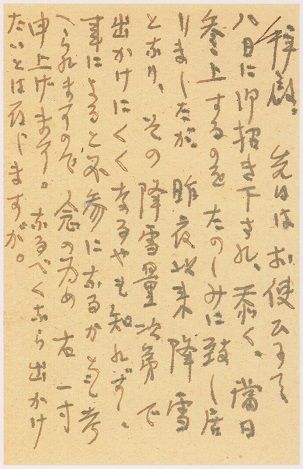 拝啓、
先日はお使にて
八日に御招き下され、忝く、當日
参上するのをたのしみに致し居
りましたが、昨夜以来降雪
となり、その降雪量次第で
出かけにくくなるやも知れず、
事によると不参になるかとも考
へられますので、念の為め右一寸
申上げます。なるべくなら出かけ
たいとは存じますが。